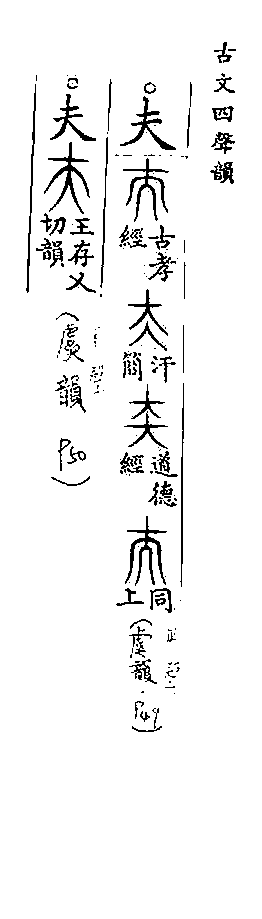 古文四聲韻
○夫 古孝經 汗簡 道德經 同上 (虞韻 P49)
○夫 王存乂切韻 (虞韻 P50)